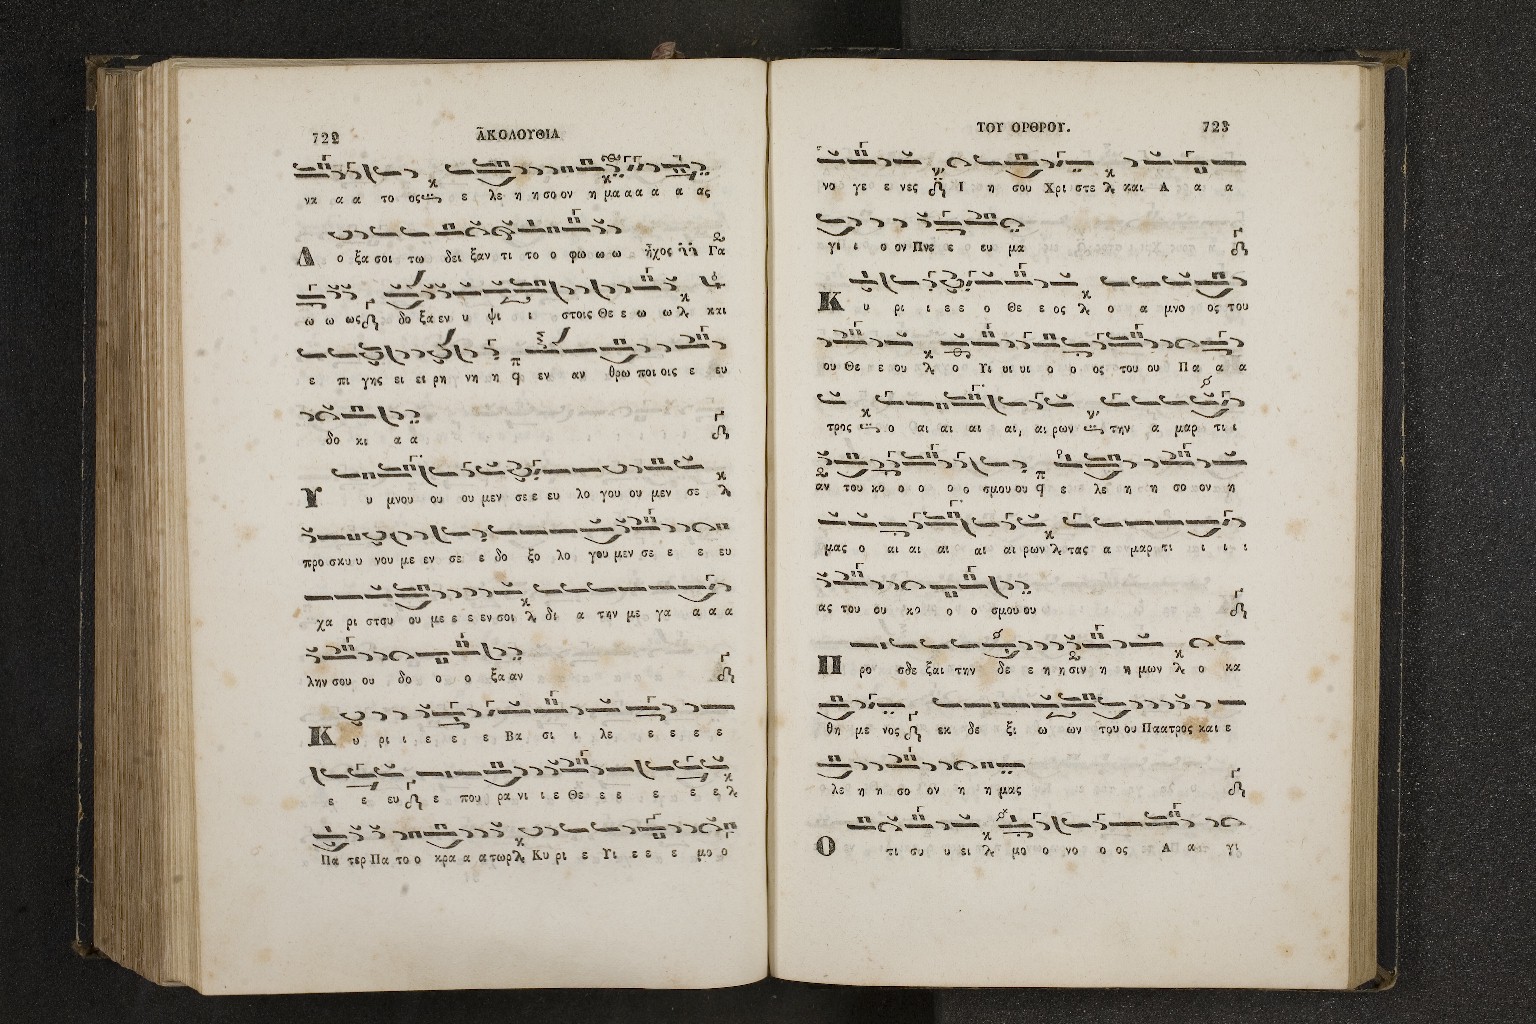 722
ἈΚΟΛΟΥΘΙΑ
να α α το ος ε λε η η σο ον η μα α α α α ας
Δο ξα σοι τω δει ξαν τι το ο φω ω ω ἦχος Γα
ω ω ως δο ξα εν υ ψι ι στοις Θε ε ω ω και
ε πι γης ει ει ρη νη η εν αν θρω ποι οις ε ευ
δο κι α α
Υ υ μνου ου ου μεν σε ε ευ λο γου ου μεν σε
προ σκυ υ νου με εν σε ε δο ξο λο γου μεν σε ε ε ευ
χα ρι στου ου με ε ε εν σοι δι α την με γα α α α
λην σου ου δο ο ο ξα αν
Κυ ρι ι ε ε ε ε Βα σι ι λε ε ε ε ε
ε ε ευ ε που ρα νι ι ε Θε ε ε ε ε ε
Πα τερ Πα το ο κρα α α τωρ Κυ ρι ε Υι ε ε ε μο ο
ΤΟΥ ΟΡΘΡΟΥ.
723
νο γε ε νες Ι η σου Χρι στε και Α α α
γι ι ο ον Πνε ε ευ μα
Κυ ρι ι ε ε ο Θε ε ος ο α μνο ος του
ου Θε ε ου ο Υι υι υι ο ο ος του ου Πα α α
τρος ο αι αι αι αι, αι ρων την α μαρ τι ι
αν του κο ο ο ο ο σμου ου ε λε η η σο ον η
μας ο αι αι αι αι αι ρων τας α μαρ τι ι ι ι
ας του ου κο ο ο σμου ου
Προ σδε ξαι την δε ε η η σιν η η μων ο κα
θη με νος εκ δε ξι ω ων του ου Πα ατρος και ε
λε η η σο ον η η μας
Ο τι συ υ ει μο ο νο ο ος Α α γι